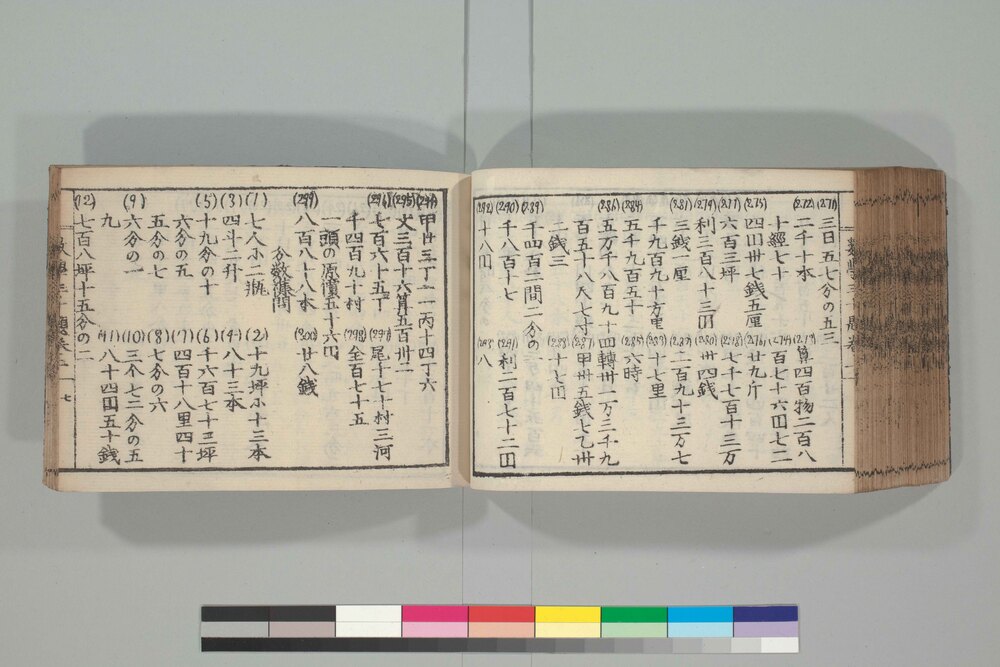 (271) 三日五七分の五三
(272) 二千十本 (273) 算四百物二百八
十經七十 (274) 百七十六円七二
(275) 四円卅七銭五厘 (276) 廿九斤
(277) 六百三坪 (278) 七千七百十三万
(279) 利三百八十三円 (280) 卅四銭
(281) 三銭一厘 二百九十三万七
千九百九十方里 (283) 十七里
(284) 五千九百五十 (285) 六時
(286) 五万千八百九十四轉卅一万三千九
百五十八尺七寸 (287) 甲卅五銭七乙卅
二銭三 (288) 十七円
(289) 千四百二間二分の一
(290) 千八百十七 (291) 利二百七十二円
(292) 十八円 (293) 八
(294) 甲廿三丁二一丙十四丁六
(295) 丈三百十六算五百卅二
(296) 七百六十五丁 (297) 尾千七十村三河
千四百九十村 (298) 全百七十五
一頭の原價五十六円
(299) 八百八十八本 (300) 廿八銭
分数雜問
(1) 七八小二瓶 (2) 十九坪小十三本
(3) 四斗二升 (4) 八十三本
(5) 十九分の十 (6) 千六百七十三坪
六分の五 (7) 四百十八里四十
五分の七 (8) 七分の六
(9) 六分の一 (10) 三个七二分の五
九 (11) 八十四円五十銭
(12) 七百八坪十五分の二